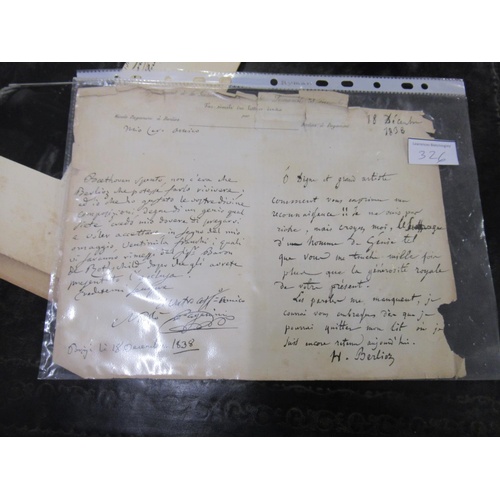 18 Décembre
1836
326
Mio Caro Amico
Beethoven spento, non c'era che
Berlioz che potesse farlo rivivere;
ed io che ho gustato le vostre divine
composizioni degne di un genio qual
siete credo mio dovere di pregarvi
a voler accettare in segno del mio
omaggio Venti mila franchi, i quali
vi saranno rimessi dal Sigr Baron
de Rothschild dopo che gli avrete
presentato l'acclusa
Credetemi sempre
il vostro aff. Amico
Nicolò Paganini
Parigi li 18 Decembre 1838
O digne et grand artiste
comment vous exprimer ma
reconnaissance!! Je ne suis pas
riche, mais croyez moi, le suffrage
d'un homme de Génie tel
que vous me touche mille fois
plus que la générosité royale
de votre présent.
Les paroles me manquent, je
courrai vous embrasser dès que je
pourrai quitter mon lit où je
suis encore retenu aujourd'hui.
H. Berlioz